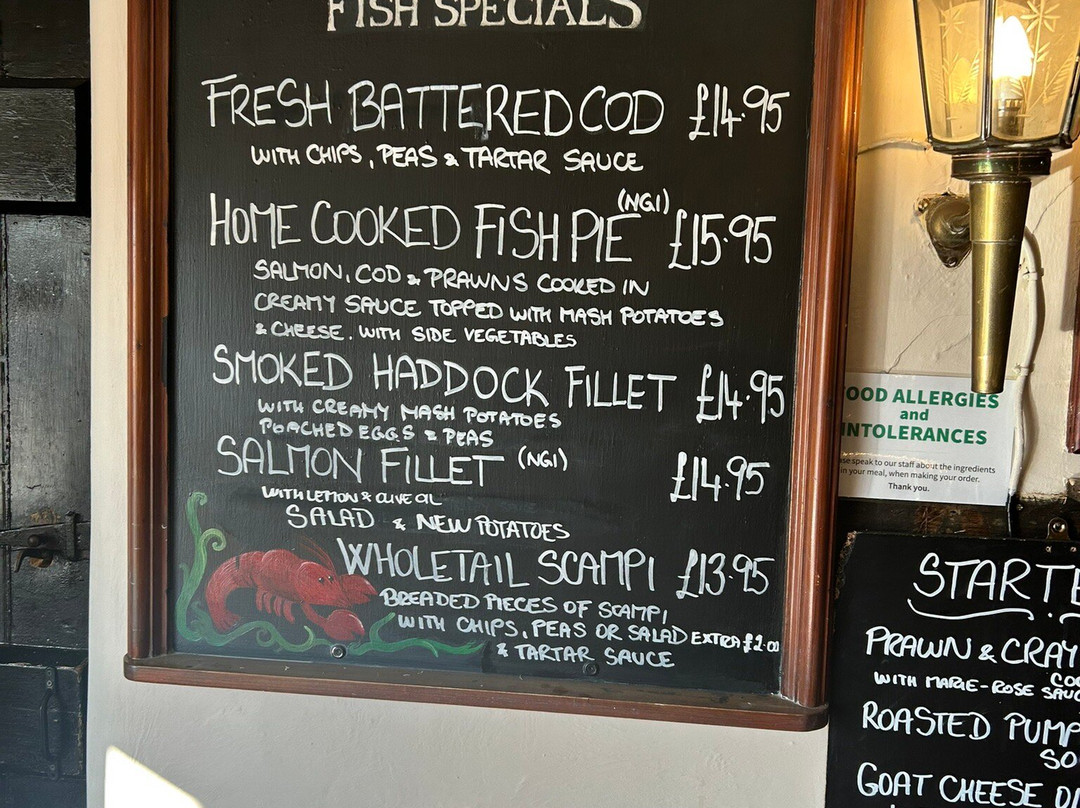 FISH SPECIALS
FRESH BATTERED COD £14.95
WITH CHIPS, PEAS & TARTAR SAUCE
HOME COOKED FISH PIE (NGI) £15.95
SALMON, COD & PRAWNS COOKED IN
CREAMY SAUCE TOPPED WITH MASH POTATOES
& CHEESE. WITH SIDE VEGETABLES
SMOKED HADDOCK FILLET £14.95
WITH CREAMY MASH POTATOES
POACHED EGGS & PEAS
SALMON FILLET (NGI) £14.95
WITH LEMON & OLIVE OIL
SALAD & NEW POTATOES
WHOLETAIL SCAMPI £13.95
BREADED PIECES OF SCAMPI
WITH CHIPS, PEAS OR SALAD EXTRA £2.00
& TARTAR SAUCE
OOD ALLERGIES
and
INTOLERANCES
ase speak to our staff about the ingredients
in your meal, when making your order.
Thank you.
STARTE
PRAWN & CRAY
CO
WITH MARIE-ROSE SAUC
ROASTED PUMP
SO
GOAT CHEESE